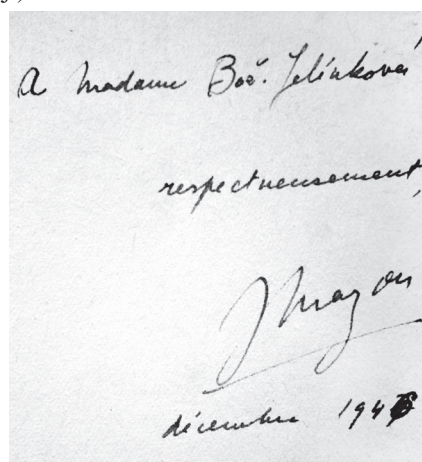 A Madame Bož. Jelínková
respectueusement,
Mazon
décembre